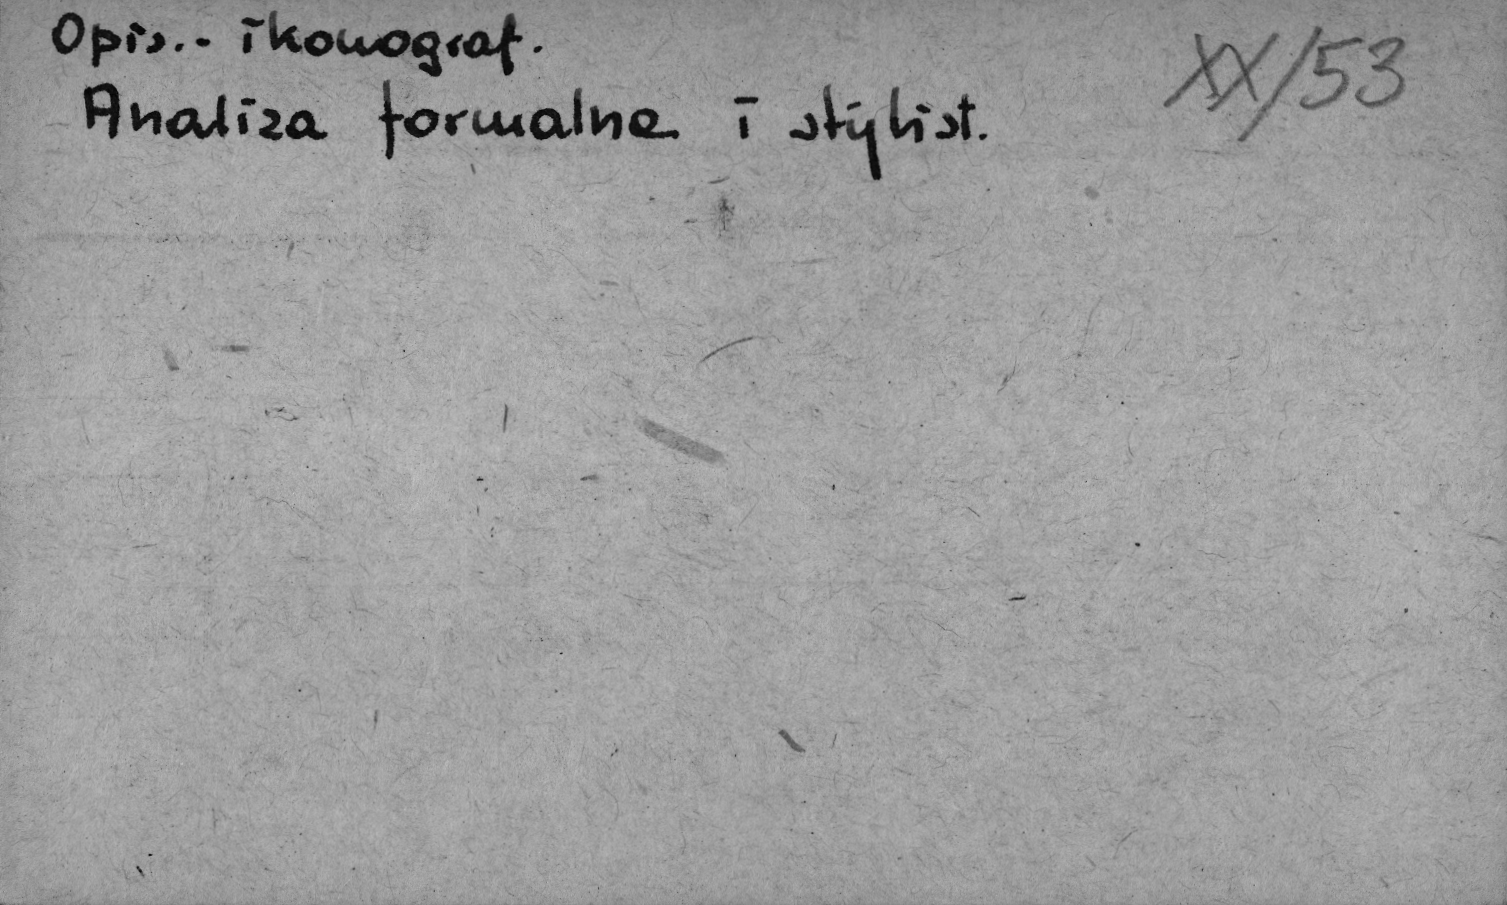 Opis.- ikonograf.
XX/53
Analiza formalne i stylist.